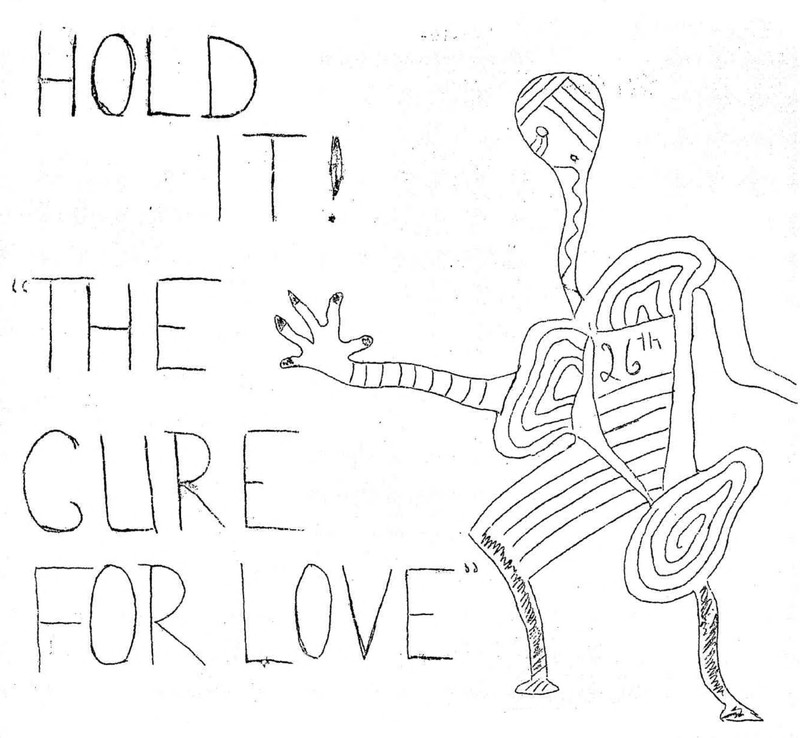 HOLD
IT!
"THE
CURE
FOR LOVE"
26th